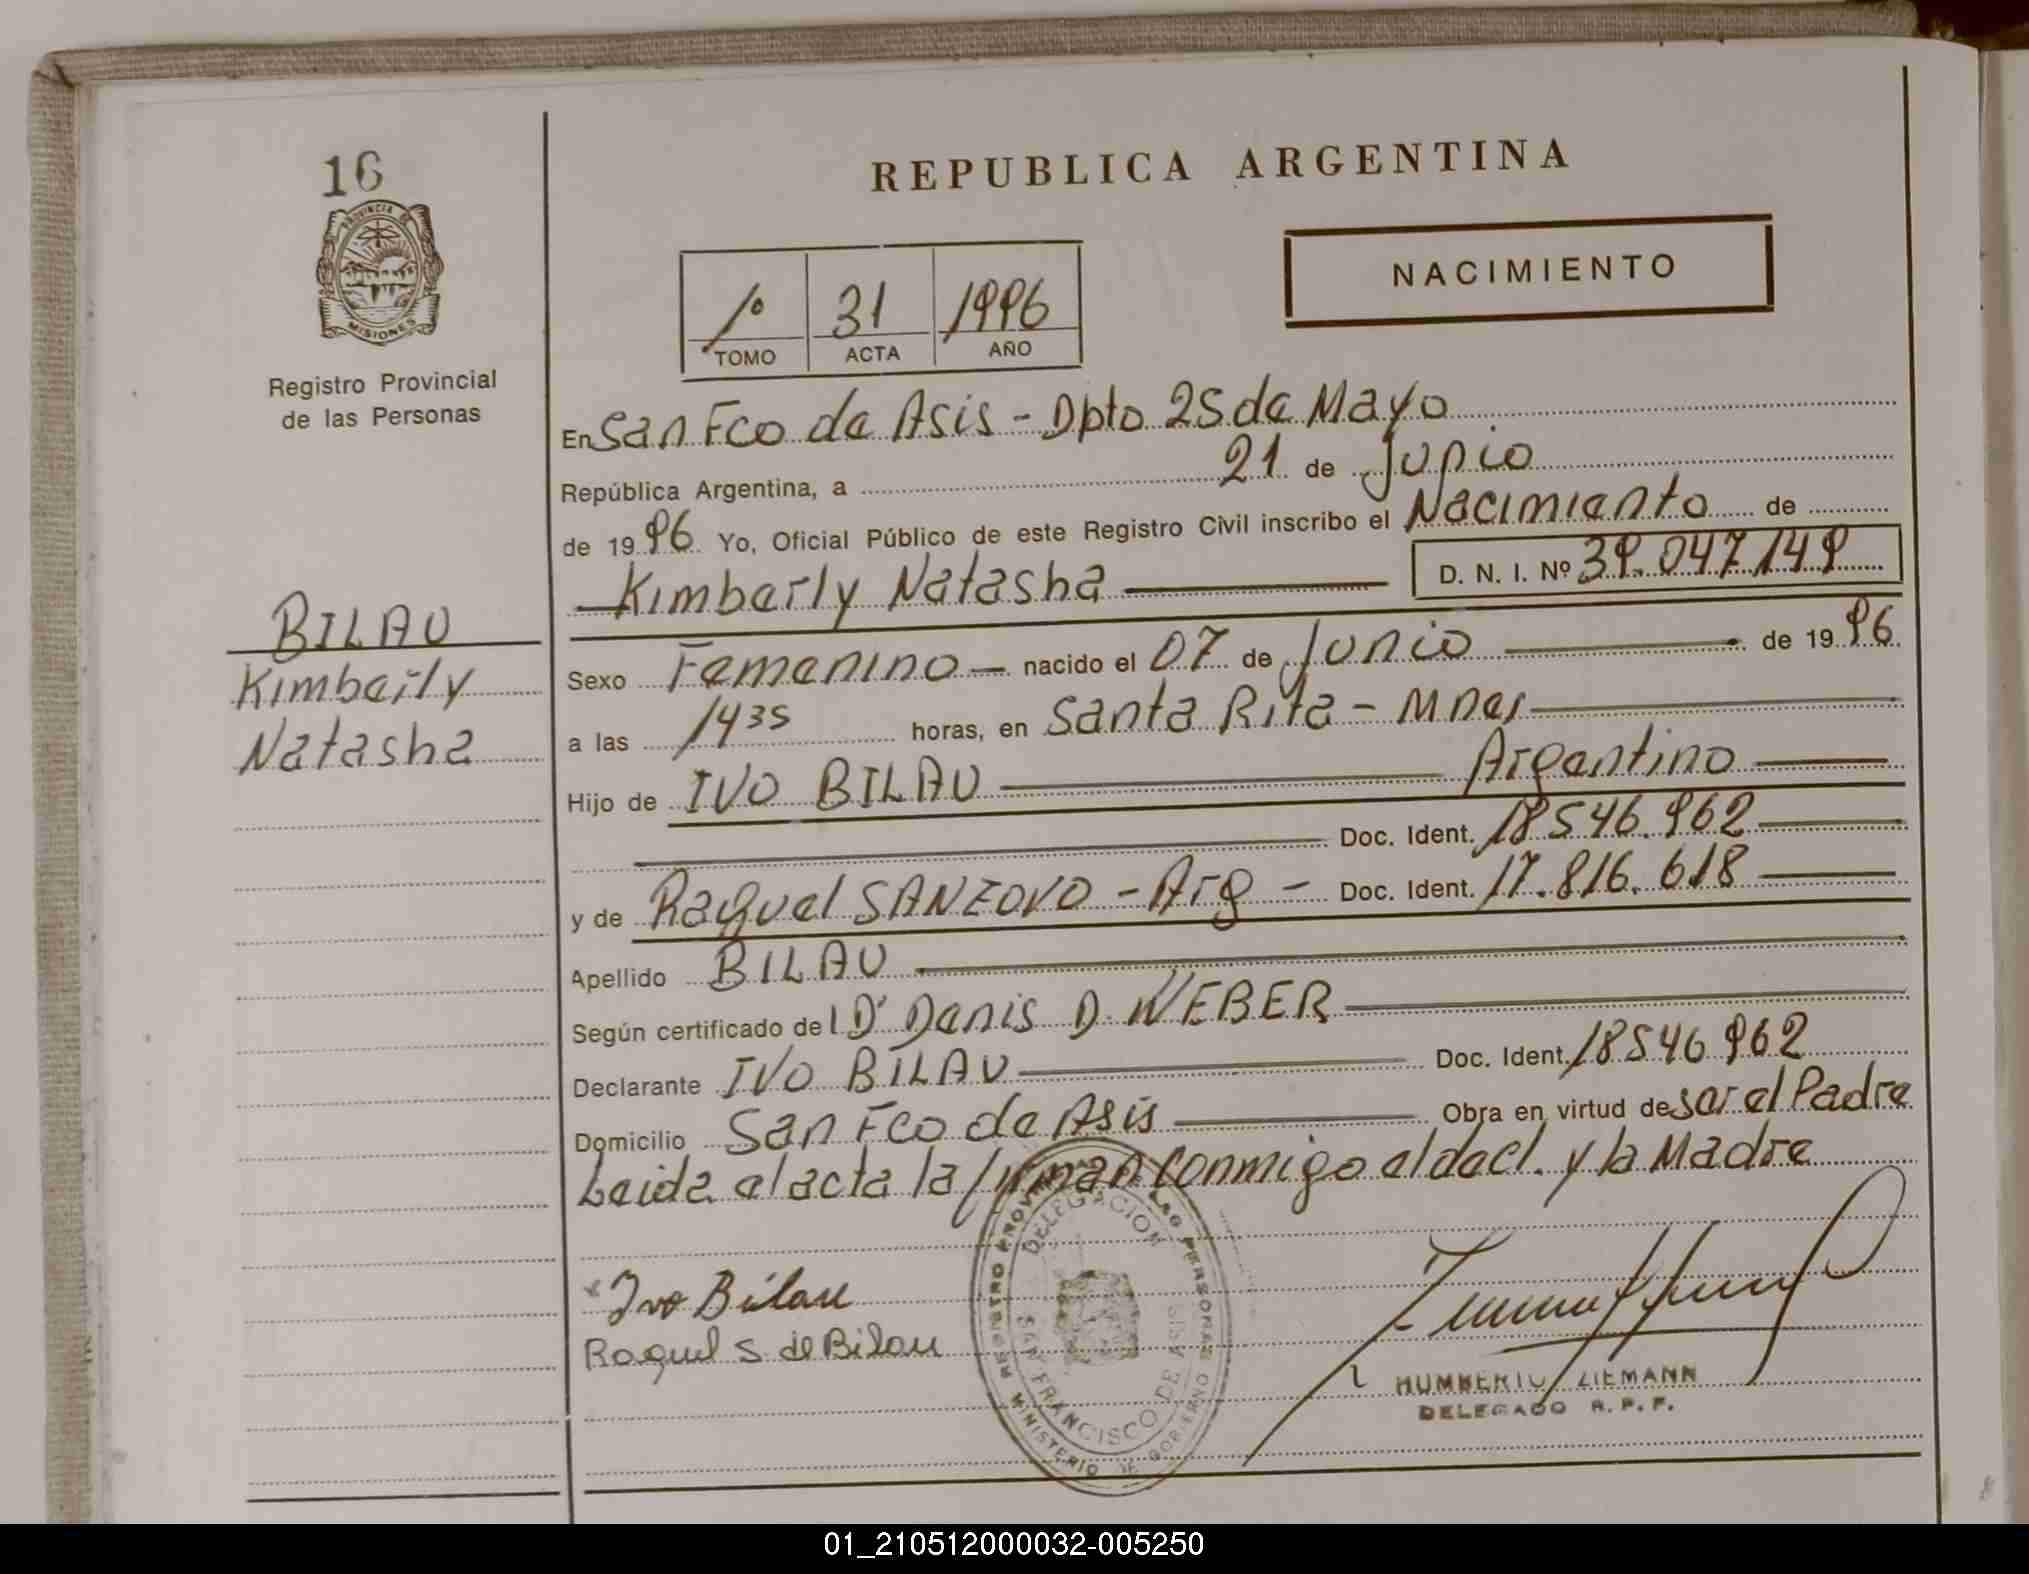 16
PROVINCIA DE
MISIONES
Registro Provincial
de las Personas
BILAU
Kimberly
Natasha
REPUBLICA ARGENTINA
NACIMIENTO
1º 31 1996
TOMO ACTA AÑO
En San Fco de Asis - Dpto 25 de Mayo
República Argentina, a 21 de Junio
de 1996 Yo, Oficial Público de este Registro Civil inscribo el Nacimiento de
Kimberly Natasha D. N. I. Nº 39.047.149
Sexo Femenino nacido el 07 de Junio de 1996
a las 1435 horas, en Santa Rita - Mnes
Hijo de IVO BILAU Argentino
Doc. Ident. 18546.962
y de Raquel SANZOVO - Arg - Doc. Ident. 17.816.618
Apellido BILAU
Según certificado del Dr Denis D. WEBER
Declarante IVO BILAU Doc. Ident. 18546962
Domicilio San Fco de Asis Obra en virtud de ser el Padre
Leida el acta la firman conmigo el decl. y la Madre
Ivo Bilau
Raquel S de Bilau
REGISTRO PROVINCIAL DE LAS PERSONAS
DELEGACION
SAN FRANCISCO DE ASIS
MINISTERIO DE GOBIERNO
HUMBERTO ZIEMANN
DELEGADO R. P. P.
01_210512000032-005250